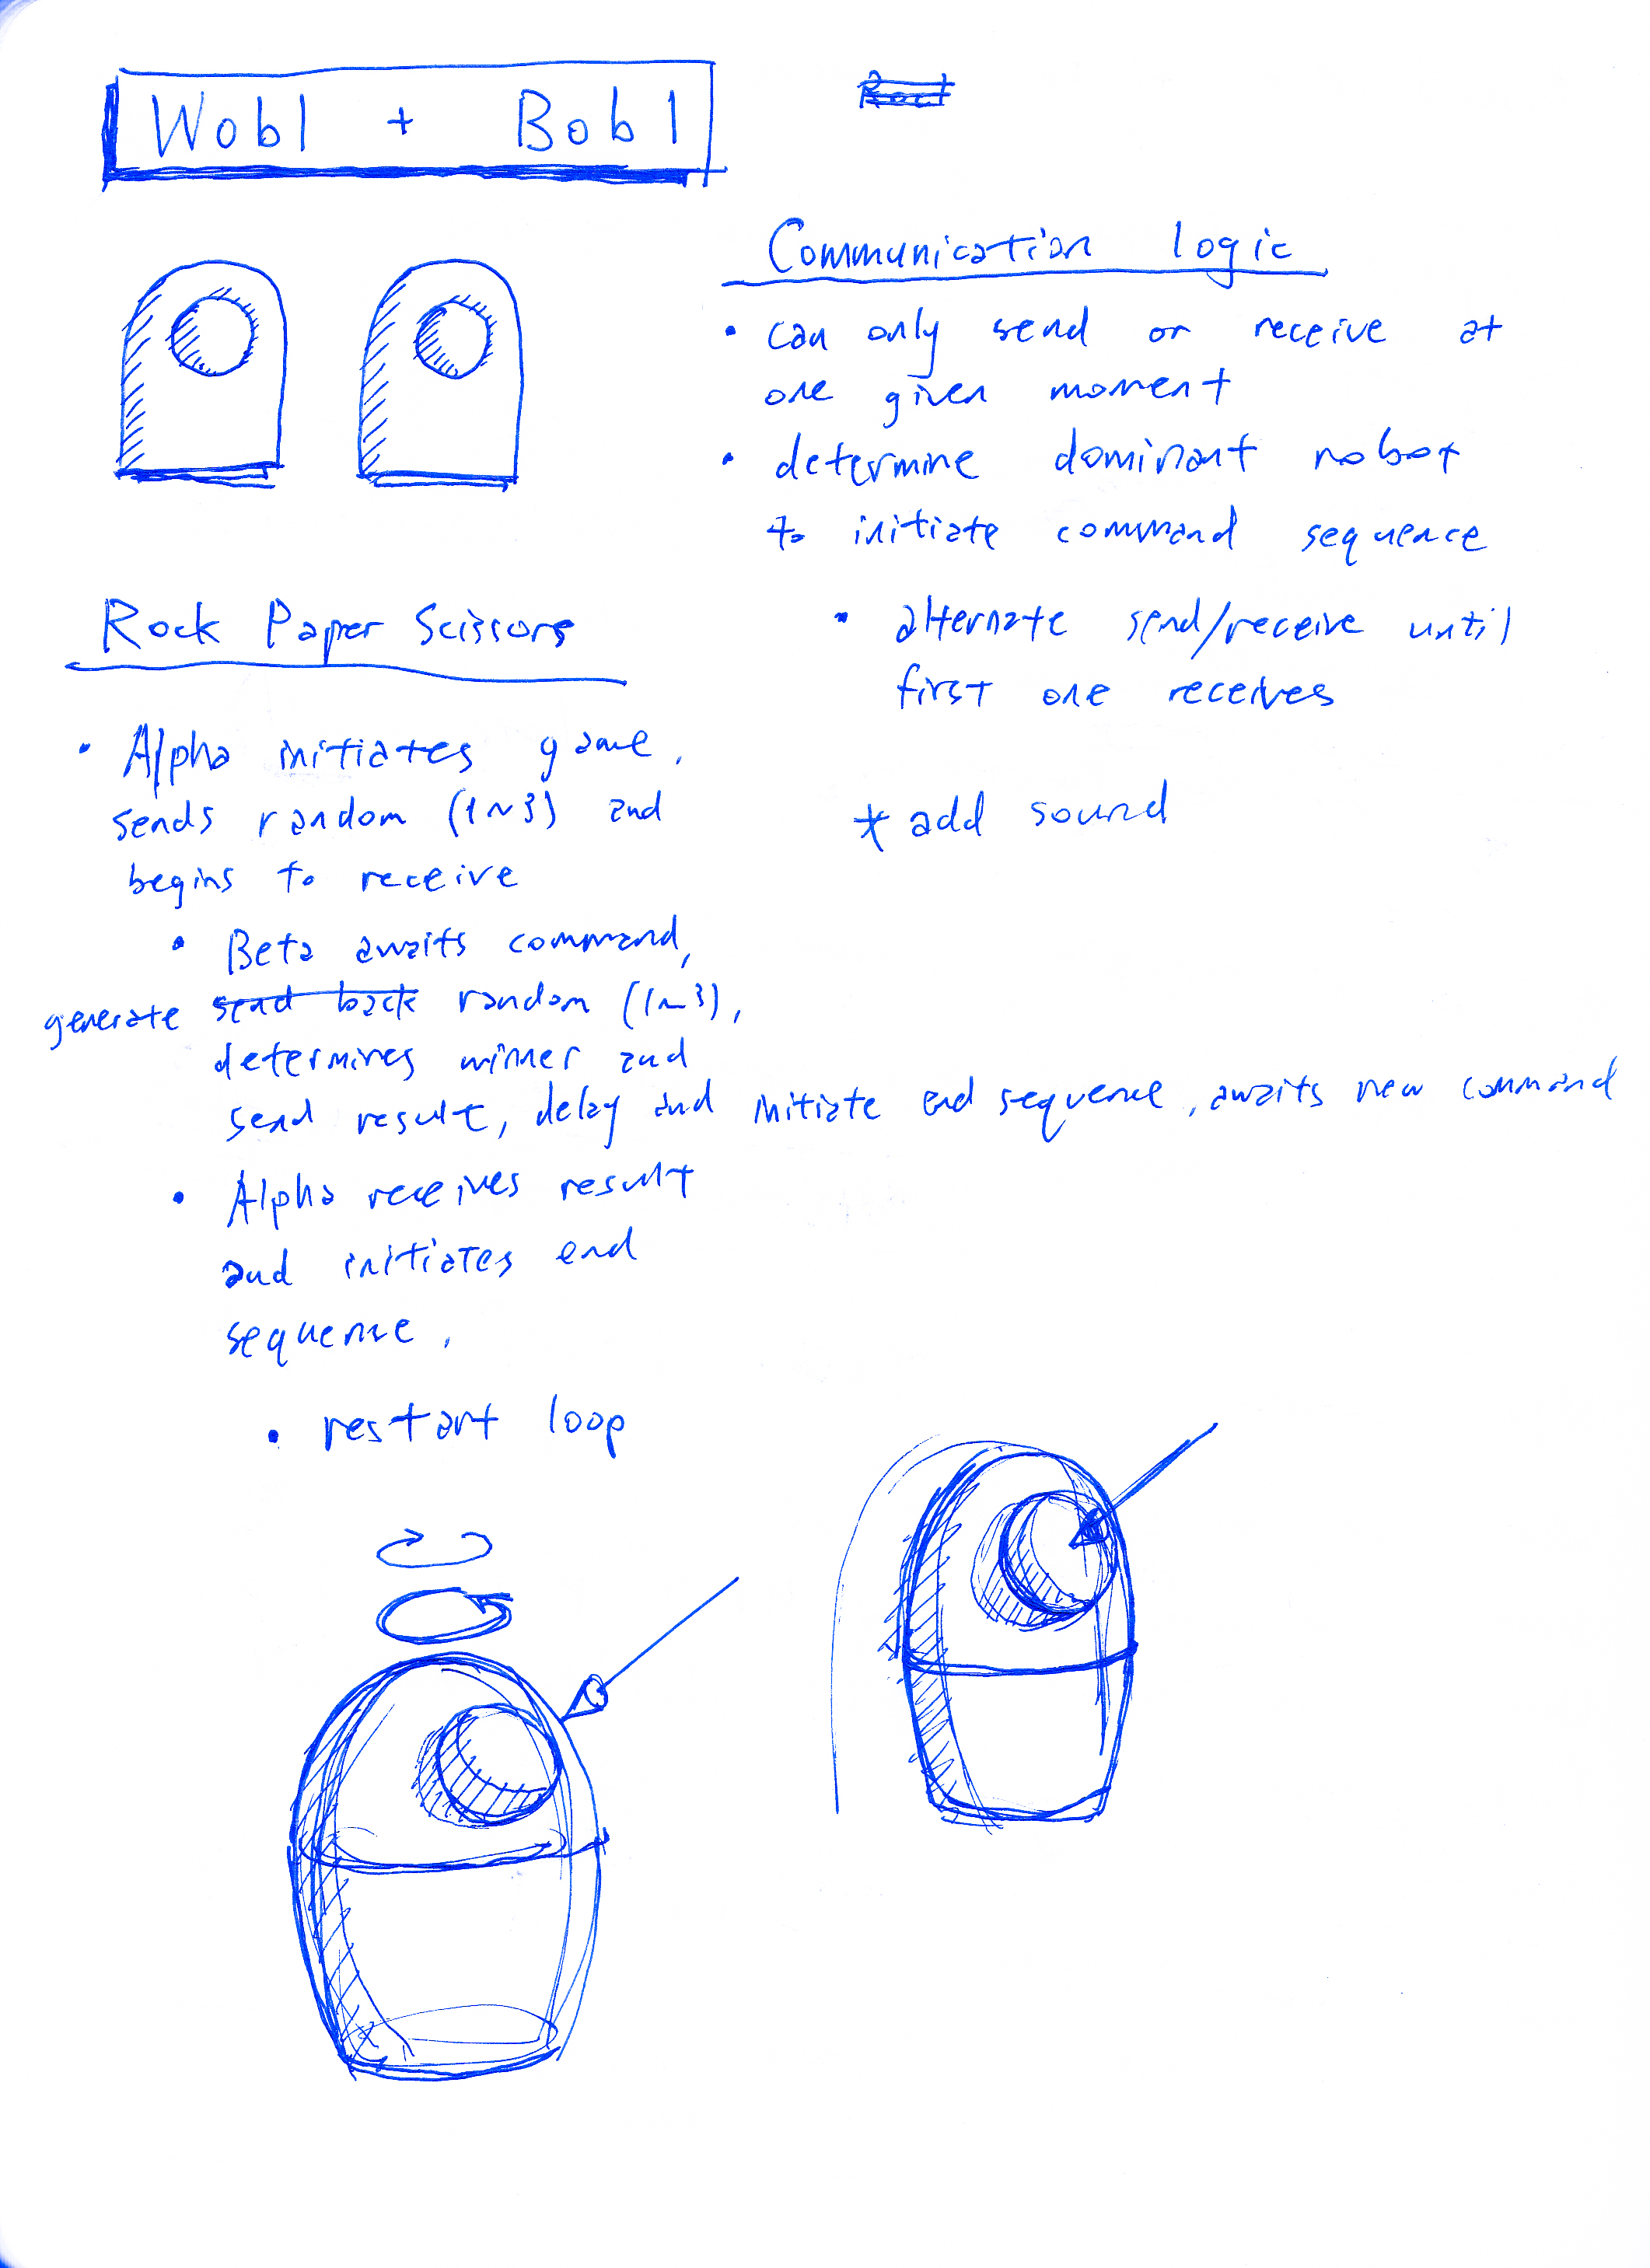 Wobl + Bobl
Communication logic
• can only send or receive at
one given moment
• determine dominant robot
to initiate command sequence
• alternate send/receive until
first one receives
* add sound
Rock Paper Scissors
• Alpha initiates game,
sends random (1~3) and
begins to receive
• Beta awaits command,
generate send back random (1~3),
determines winner and
send result, delay and initiate end sequence, awaits new command
• Alpha receives result
and initiates end
sequence,
• restart loop